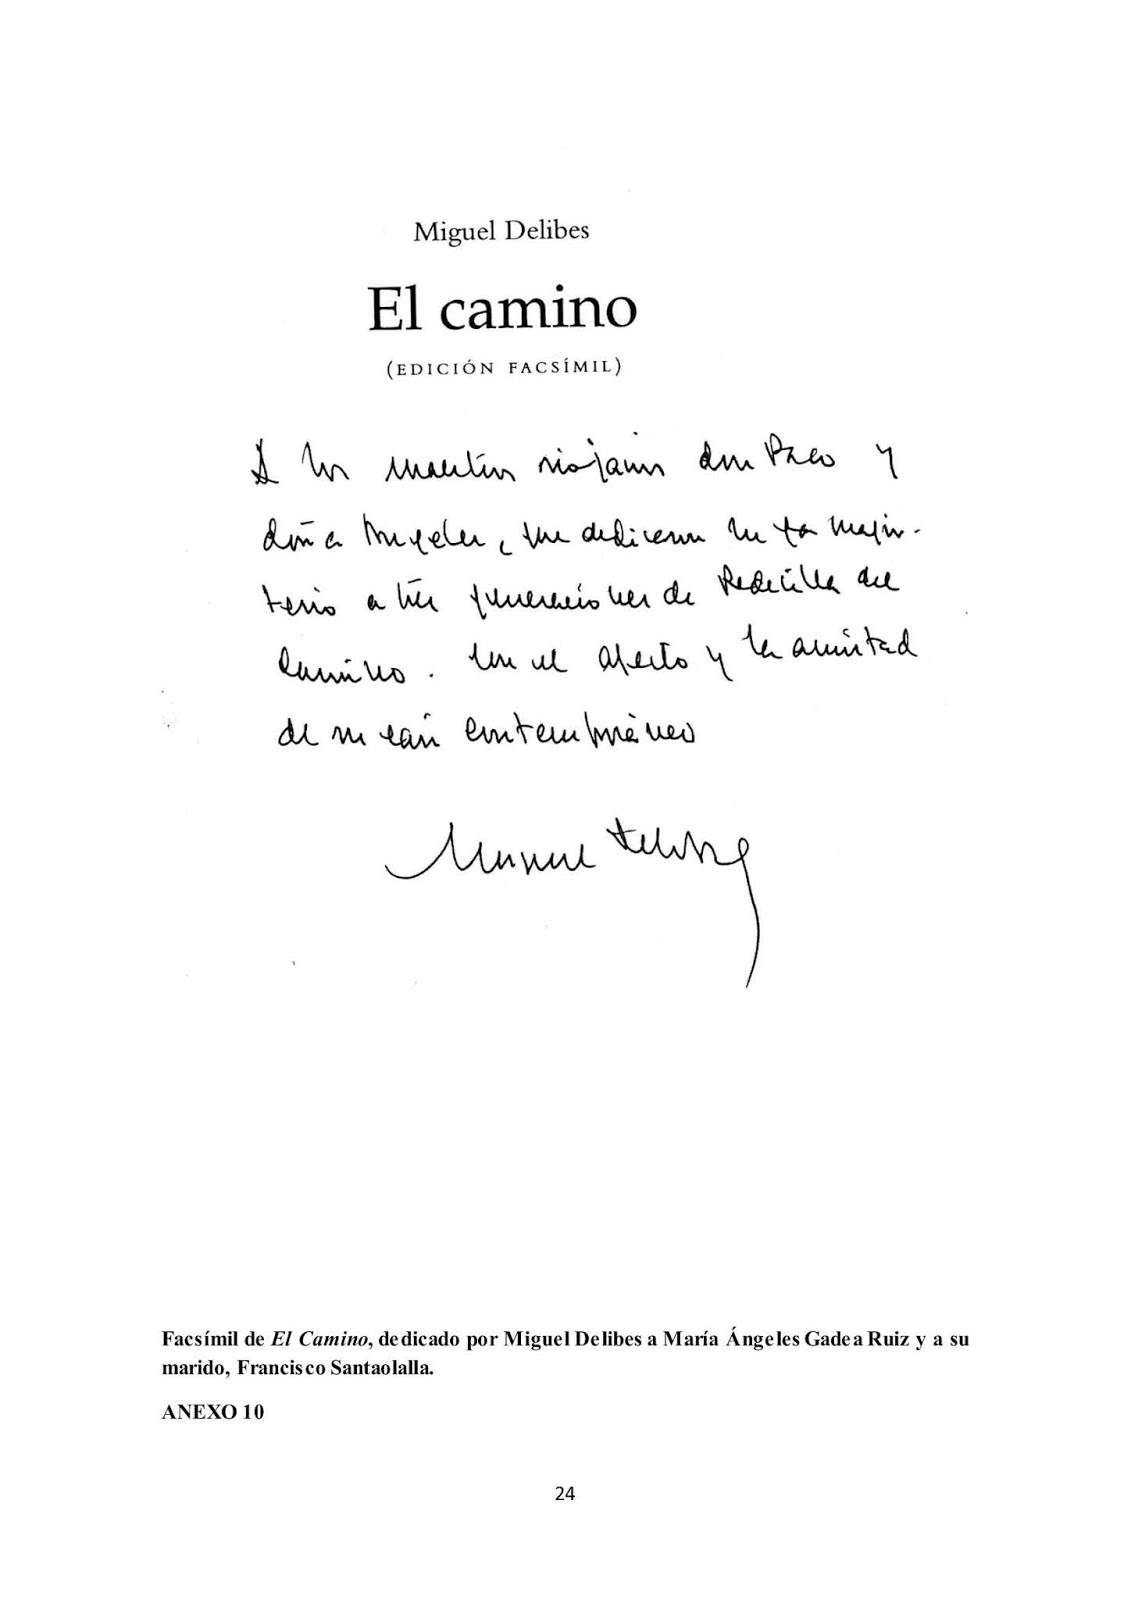 Miguel Delibes
El camino
(EDICIÓN FACSÍMIL)
A los maestros riojanos don Paco y
doña Angeles, que dedicaron su magis-
terio a tres generaciones de Redecilla del
Camino. Con el afecto y la amistad
de su casi contemporáneo
Miguel Delibes
Facsímil de El Camino, dedicado por Miguel Delibes a María Ángeles Gadea Ruiz y a su
marido, Francisco Santaolalla.
ANEXO 10
24